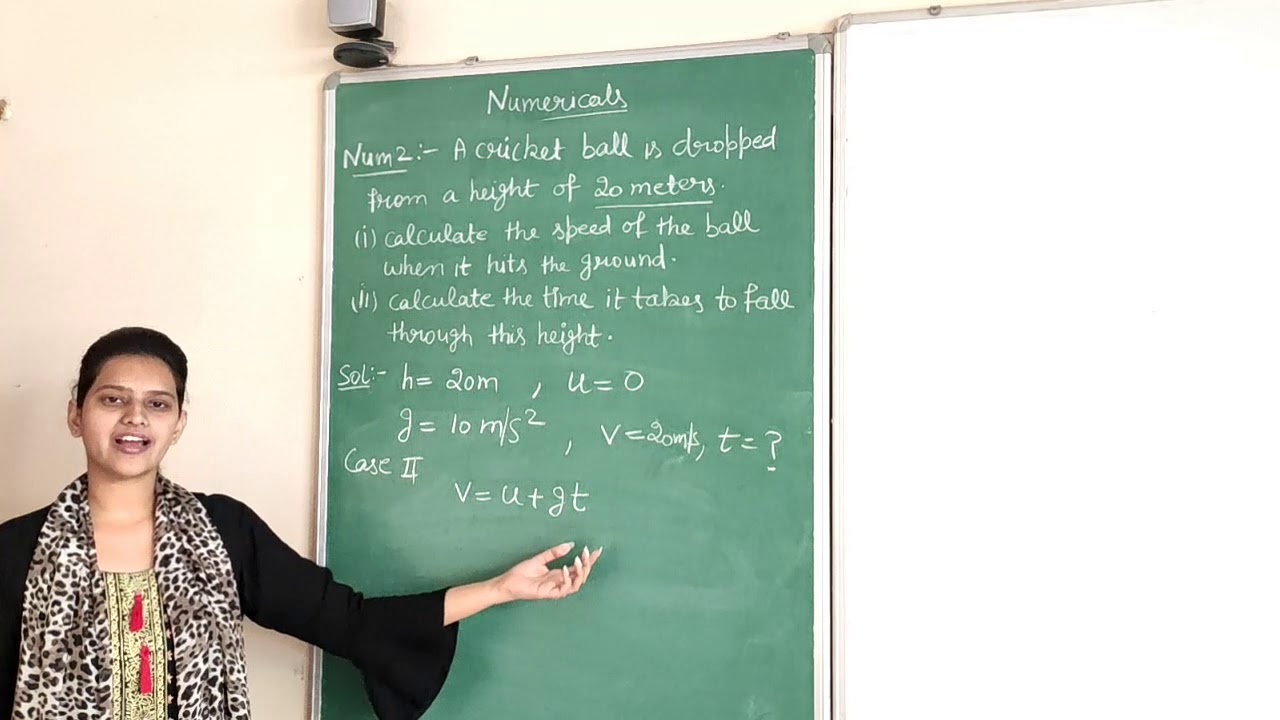 Numericals
Num 2:- A cricket ball is dropped
from a height of 20 meters.
(i) calculate the speed of the ball
when it hits the ground.
(ii) calculate the time it takes to fall
through this height.
Sol:- h= 20m , u= 0
g= 10 m/s² , v=20m/s, t=?
Case II
v= u+gt